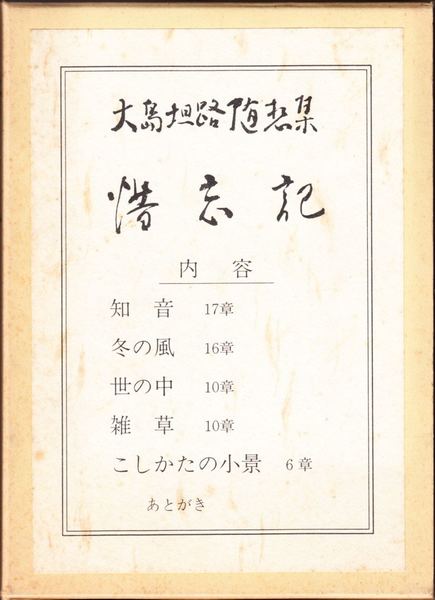 大島坦路随想集
惜忘記
内容
知音 17章
冬の風 16章
世の中 10章
雑草 10章
こしかたの小景 6章
あとがき